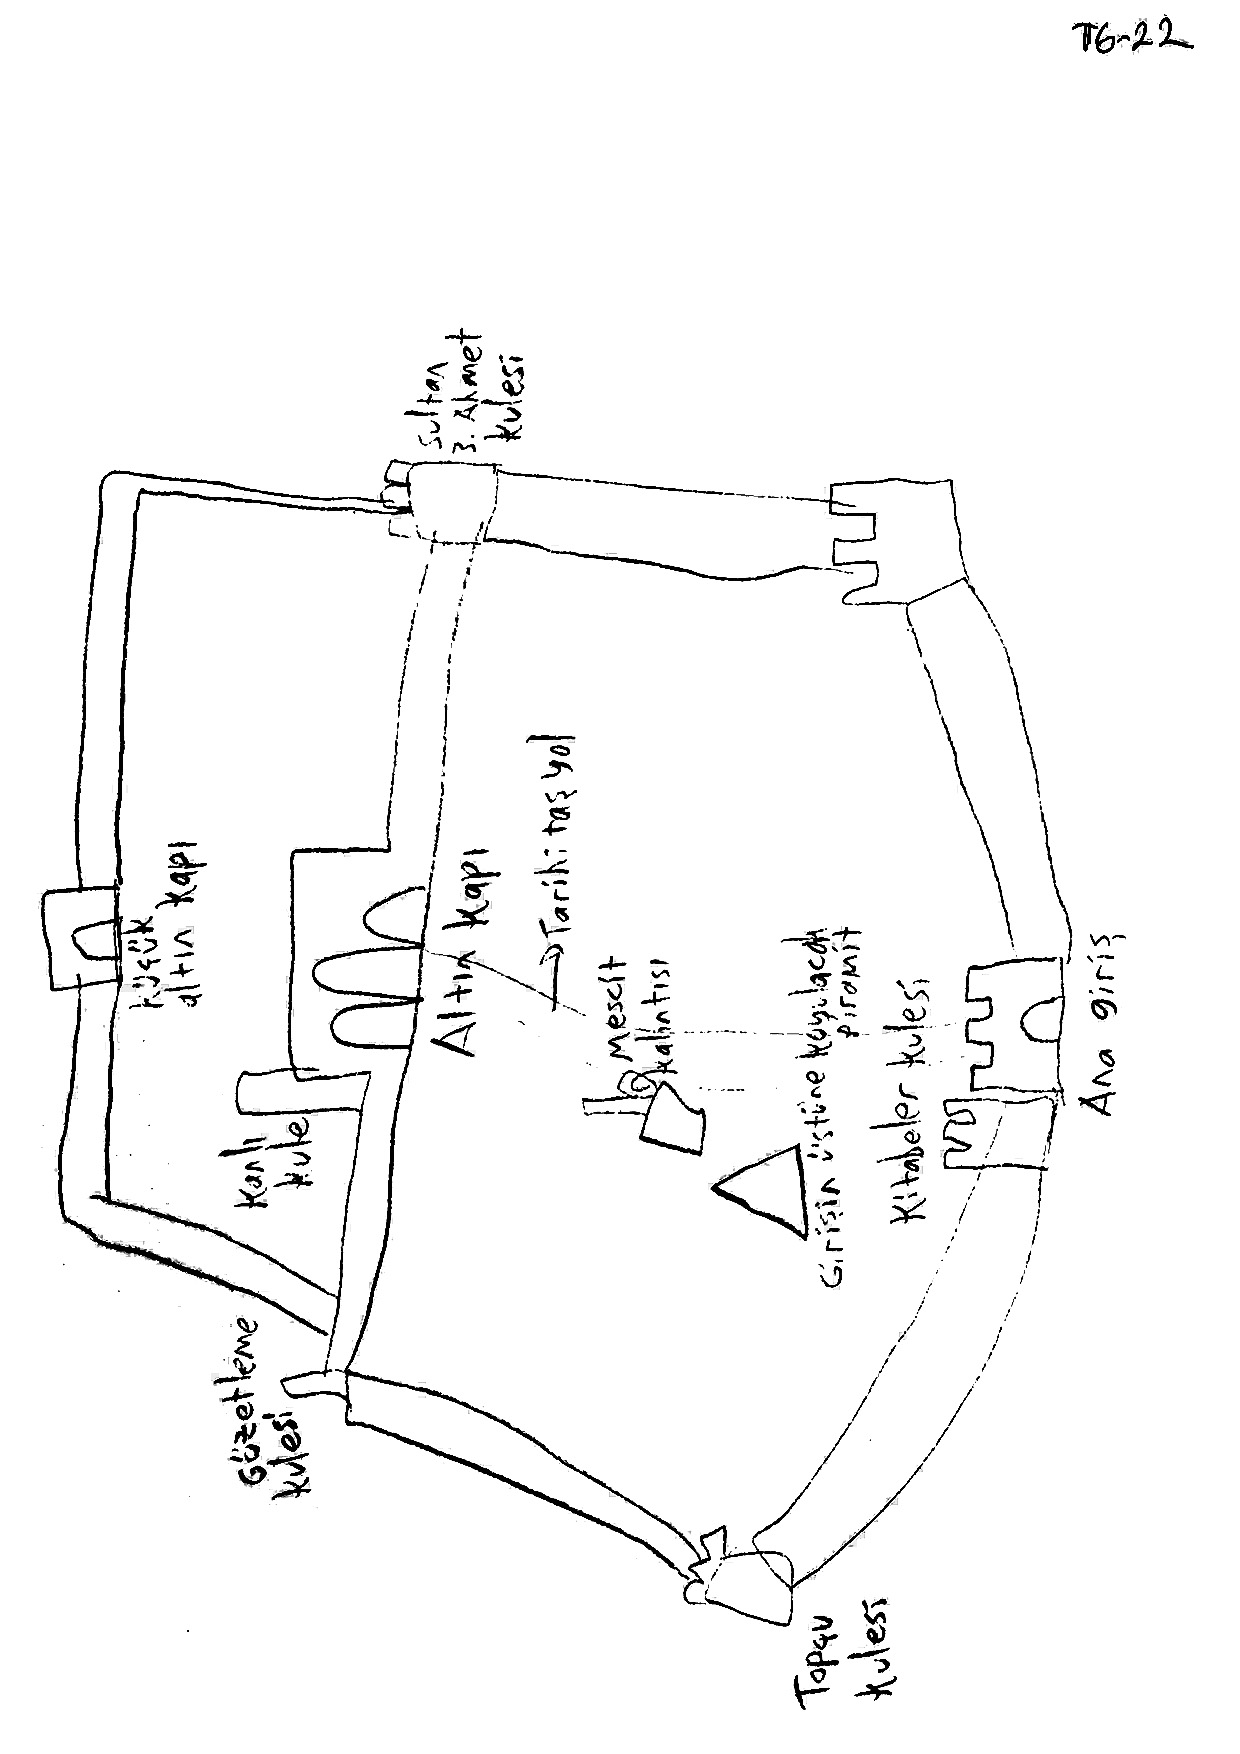 küçük
altın kapı
Gözetleme
kulesi
Kanlı
kule
Altın kapı
Sultan
3. Ahmet
kulesi
Tarihi taş yol
Mescit
kalıntısı
Girişin üstüne koyulacak
piramit
Topçu
kulesi
Kitabeler kulesi
Ana giriş
TG-22